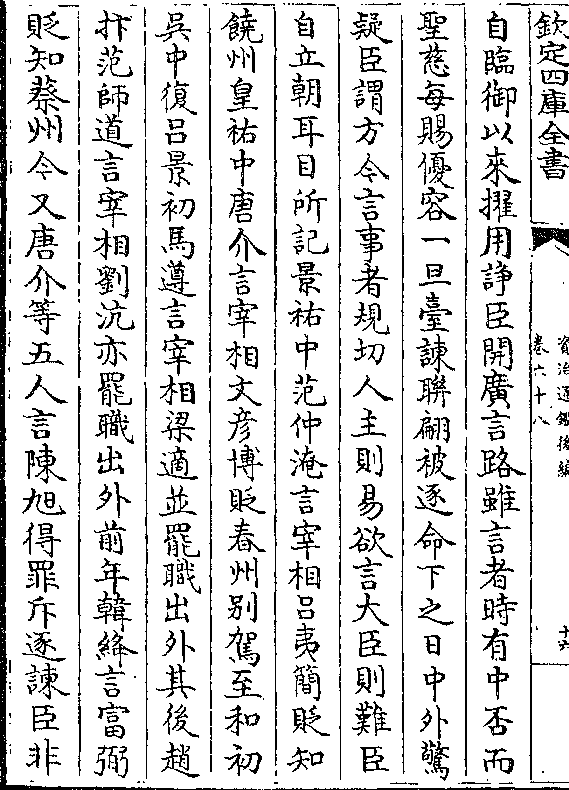 欽定四庫全書
資治通鑑後編
卷六十八
十六
自臨御以來擢用諍臣開廣言路雖言者時有中否而
聖慈每賜優容一旦臺諫聨翩被逐命下之日中外驚
疑臣謂方今言事者規切人主則易欲言大臣則難臣
自立朝耳目所記景祐中范仲淹言宰相吕夷簡貶知
饒州皇祐中唐介言宰相文彦博貶春州别駕至和初
吳中復吕景初馬遵言宰相梁適並罷職出外其後趙
抃范師道言宰相劉沆亦罷職出外前年韓絳言富弼
貶知蔡州今又唐介等五人言陳旭得罪斥逐諫臣非